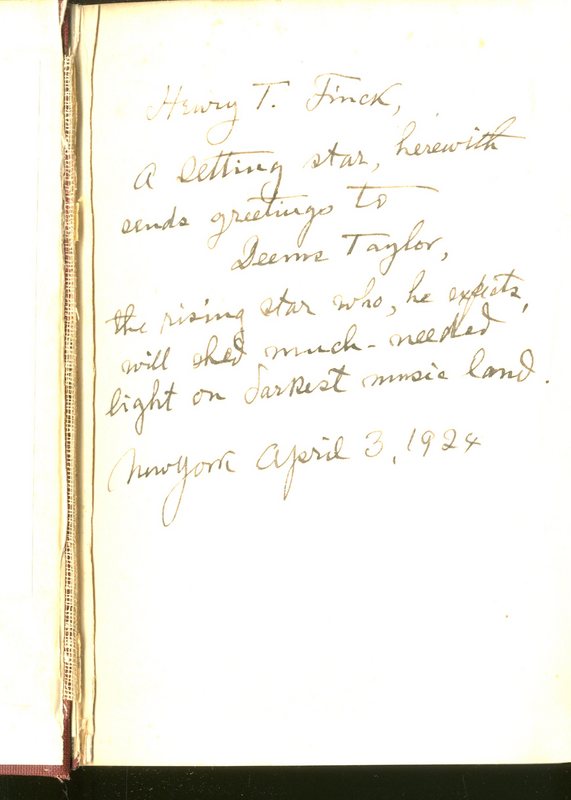 Henry T. Finck,
A setting star, herewith
sends greetings to
Deems Taylor,
the rising star who, he expects,
will shed much-needed
light on darkest music land.
New York April 3, 1924